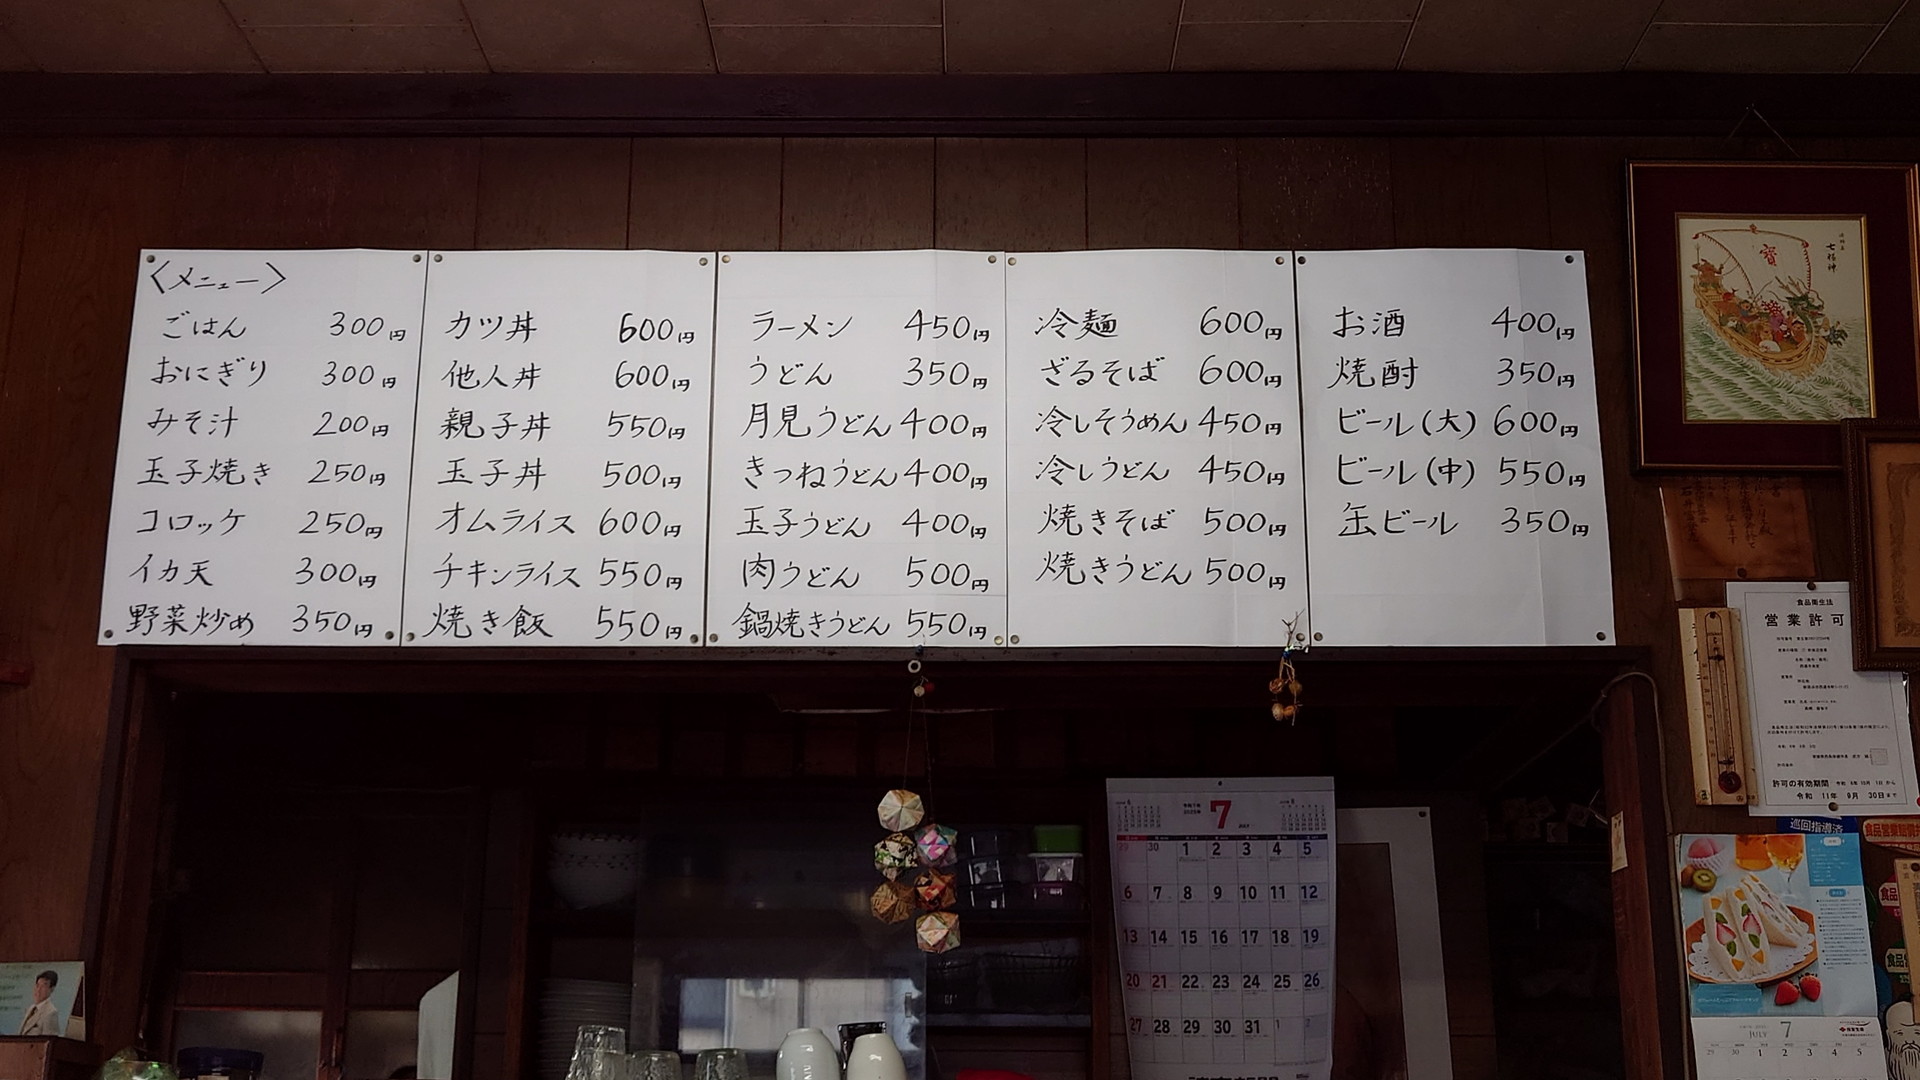 〈メニュー〉
ごはん 300円
おにぎり 300円
みそ汁 200円
玉子焼き 250円
コロッケ 250円
イカ天 300円
野菜炒め 350円
カツ丼 600円
他人丼 600円
親子丼 550円
玉子丼 500円
オムライス 600円
チキンライス 550円
焼き飯 550円
ラーメン 450円
うどん 350円
月見うどん 400円
きつねうどん 400円
玉子うどん 400円
肉うどん 500円
鍋焼きうどん 550円
冷麺 600円
ざるそば 600円
冷しそうめん 450円
冷しうどん 450円
焼きそば 500円
焼きうどん 500円
お酒 400円
焼酎 350円
ビール(大) 600円
ビール(中) 550円
缶ビール 350円
寳
七福神
食品衛生法
営業許可
許可の有効期間
令和 11年 9月 30日まで
巡回指導済
7 JULY
29 30 1 2 3 4 5
6 7 8 9 10 11 12
13 14 15 16 17 18 19
20 21 22 23 24 25 26
27 28 29 30 31 1 2
JULY 7
29 30 1 2 3 4 5